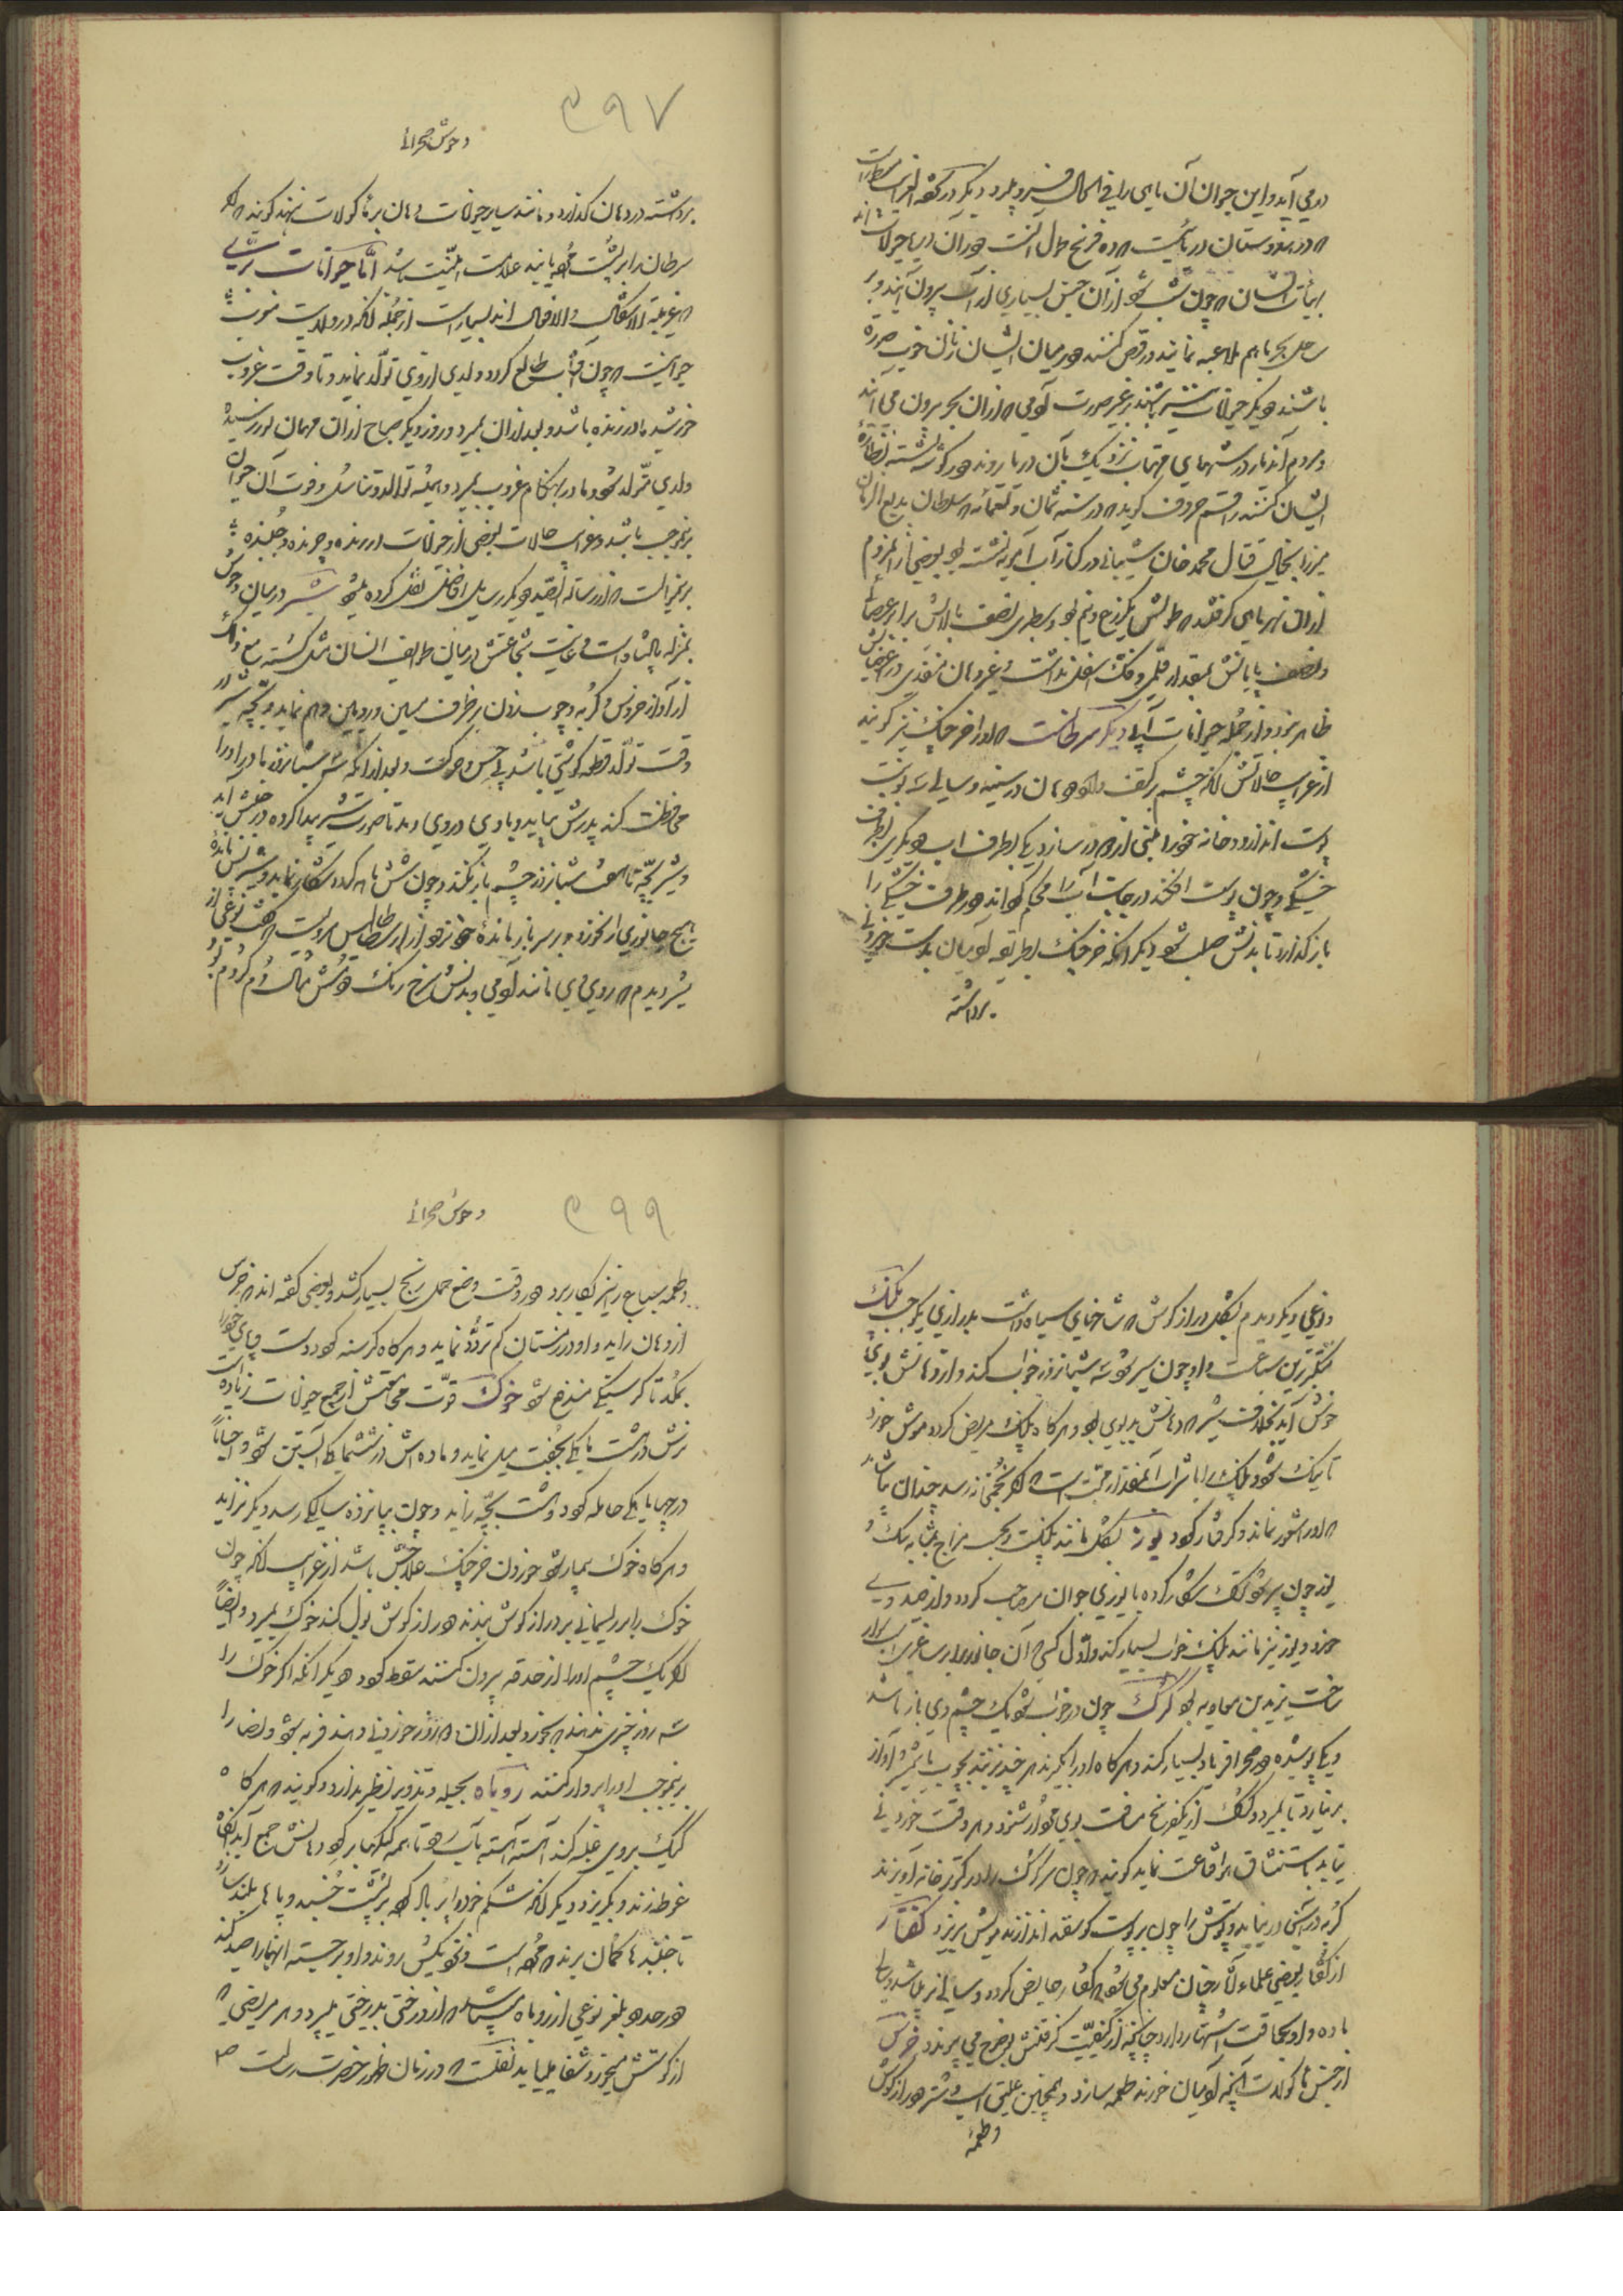 در می آید و این حیوان آن ماهی را فی الحال فرو برد دیگر در
در هندوستان دریائیست که ده فرسخ طول آنست و در آن دریا حیوانات
بهیأت انسان که چون شب شود از آن جنس بسیاری از آب بیرون آیند و بر
ساحل بحر باهم ملاعبه نمایند و رقص کنند و در میان ایشان زنان خوب صورت
باشند و دیگر حیوانات غیر صورت آدمی از آن بحر بیرون می آیند
و مردم آن دیار در شبهای مهتاب نزدیک بآن دریا روند و در گوشه نشسته نظاره
ایشان کنند راقم حروف گوید که در سنه ثمان و تسعمائه که سلطان بدیع الزمان
میرزا بخیال قتال محمد خان شیبانی در کنار آب آمویه نشسته بود بعضی از مردم
از آن نهر ماهی گرفتند که طولش یکذرع و نیم بود و نصف بالایش برابر
و نصف پایانش بمقدار قلمی و فک اسفل نداشت و غیر دهان منفذی در اعضایش
ظاهر نبود و از جمله حیوانات آبی دیگر سرطانست که او را خرچنگ نیز گویند
از غرایب حالاتش آنکه چشم بر کتف دارد و دهان در سینه و سالی نوبت
پوست اندازد و خانه خود را در سازد یکی بطرف آب و دیگری بطرف
خشکی و چون پوست افکند در جانب آب را محکم کرداند و طرف خشکی را
باز گذارد تا بدنش صلب شود دیگر آنکه خرچنگ بطریقه آدمیان بدست خوردنی
برداشته
۳۹۷
وحوش صحرائی
برداشته در دهان گذارد و مانند سایر حیوانات دهان بر مأکولات ننهد گویند که اگر
سرطان را بر پشت یابند علامت امنیت باشد اما حیوانات بری
که غریبة الاشکال و الافعال اند بسیار است از جمله آنکه در ولایت
حیوانیست که چون آفتاب طالع گردد ولدی از وی تولد نماید و تا وقت غروب
خورشید مادر زنده باشد و بعد از آن بمیرد و روز دیگر صباح از آن مهمان نورسیده
ولدی متولد شود و مادر بهنگام غروب بمیرد و همیشه توالد و تناسل و فوت آن حیوان
برینموجب باشد و غرایب حالات بعضی از حیوانات درنده و چرنده و جنبنده
برینموجبست که از رساله نقل کرده میشود شیر در میان وحوش
بمنزله پادشاه است و غایت شجاعتش در میان طوایف انسان مع ذلک
از آواز خروس و گربه و چوب زدن بر ظرف مسین و رویین وهم نماید و بچه شیر در
وقت تولد قطعه گوشتی باشد بی حس و حرکت و بعد از آنکه سه شبانروز مادر او را
محافظت کند پدرش بیاید و باد در وی دمد تا صورت شیر پیدا کرده در جنبش آید
و شیر بچه تا هفت شبانروز چشم باز نکند و چون شش ماهه گردد شکار نماید و شیر پس مانده
هیچ جانوری را نخورد و بر سر باز مانده خود نرود از ارسطاطالیس مرویست که گفت نوعی از
شیر دیدم که روی وی مانند آدمی و بدنش سرخ رنگ و دمش بمثال دم کژدم بود
و نوعی دیگر دیدم بشکل دراز گوش که شاخهای سیاه داشت بدرازی یک وجب پلنگ
متکبرترین سباعست و او چون سیر شود سه شبانروز خواب کند و از دهانش بوی
خوش آید بخلاف شیر که دهانش بدبوی بود و هرگاه پلنگ مریض گردد موش خورد
تا نیک شود و پلنگ را با شراب آنمقدار محبت است که اگر بخمی از آن رسد چندان بیاشامد
که او را شعور نماند و گرفتار گردد یوز بشکل مانند پلنگست و بحسب مزاج بمثابه سگ و
یوز چون پیر شود ترک شکار کرده با یوزی جوان مصاحب گردد و از صید وی
خورد و یوز نیز مانند پلنگ خواب بسیار کند و اول کسی که آن جانور را بر ساغری اسب سوار
ساخت یزید بن معاویه بود گرگ چون در خواب شود یک چشم وی باز باشد
و یکی پوشیده و در صحرا فریاد بسیار کند و هرگاه او را بگیرند هر چند بزنند بچوب یا شمشیر آواز
بر نیارد تا بمیرد و گرگ از یکفرسخ مسافت بوی مردار شنود و هر وقت خوردنی
نیابد باستنشاق هوا قناعت نماید گویند که چون سر گرگ را در کبوتر خانه آویزند
گربه در آنجا در نیاید و پوستش را چون بر پوست گوسفند اندازند مویش بریزد کفتار
از گفتار بعضی علماء آثار چنان معلوم می شود که کفتار حایض گردد و سالی نر باشد و سالی
ماده و او بحماقت اشتهار دارد چنانچه از کیفیت گرفتنش بوضوح می پیوندد خرس
از جنس مأکولات آنچه آدمیان خورند طعمه سازد و همچنین علف اسب و شتر و دراز گوش
و طعمه
۳۹۹
وحوش صحرائی
و طعمه سباع را نیز بکار برد و در وقت وضع حمل رنج بسیار کشد و بعضی گفته اند که خرس
از دهان زاید و او در زمستان کم تردد نماید و هرگاه گرسنه گردد دست و پای خود را
بمکد تا گرسنگی مندفع شود خوک قوت مجامعتش از جمیع حیوانات زیاده است
نرش در هشت ماهگی بجفت میل نماید و ماده اش در ششماهگی آبستن شود و احیاناً
در چهار ماهگی حامله گردد و هشت بچه زاید و چون بپانزده سالگی رسد دیگر نزاید
و هرگاه خوک بیمار شود خوردن خرچنگ علاجش باشد از غرایب آنکه چون
خوک را بریسمانی بر دراز گوش بندند و دراز گوش بول کند خوک بمیرد و ایضاً
اگر یک چشم او را از حدقه بیرون کنند سقط گردد و دیگر آنکه اگر خوک را
سه روز چیزی ندهند که بخورد و بعد از آن دو روز خوردنی دهند فربه شود و نصارا
برینموجب او را پروار کنند روباه بحیله و تزویر نظیر ندارد و گویند که هرگاه
کیک بر وی غلبه کند آهسته آهسته بآب رود تا همه کیکها بر گرد دهانش جمع آید آنگاه
غوطه زند و بگریزد دیگر آنکه شکم خود را پر باد کرده بر پشت خسبد و پاها بلند سازد
تا جنبندها گمان برند که مرده است و نزدیکش روند و او برجسته آنها را صید کند
و در حدود بلغر نوعی از روباه میباشد که از درختی بدرختی میپرد و هر مریضی که
از گوشتش میخورد شفا مییابد نقلست که در زمان ظهور حضرت رسالت ص